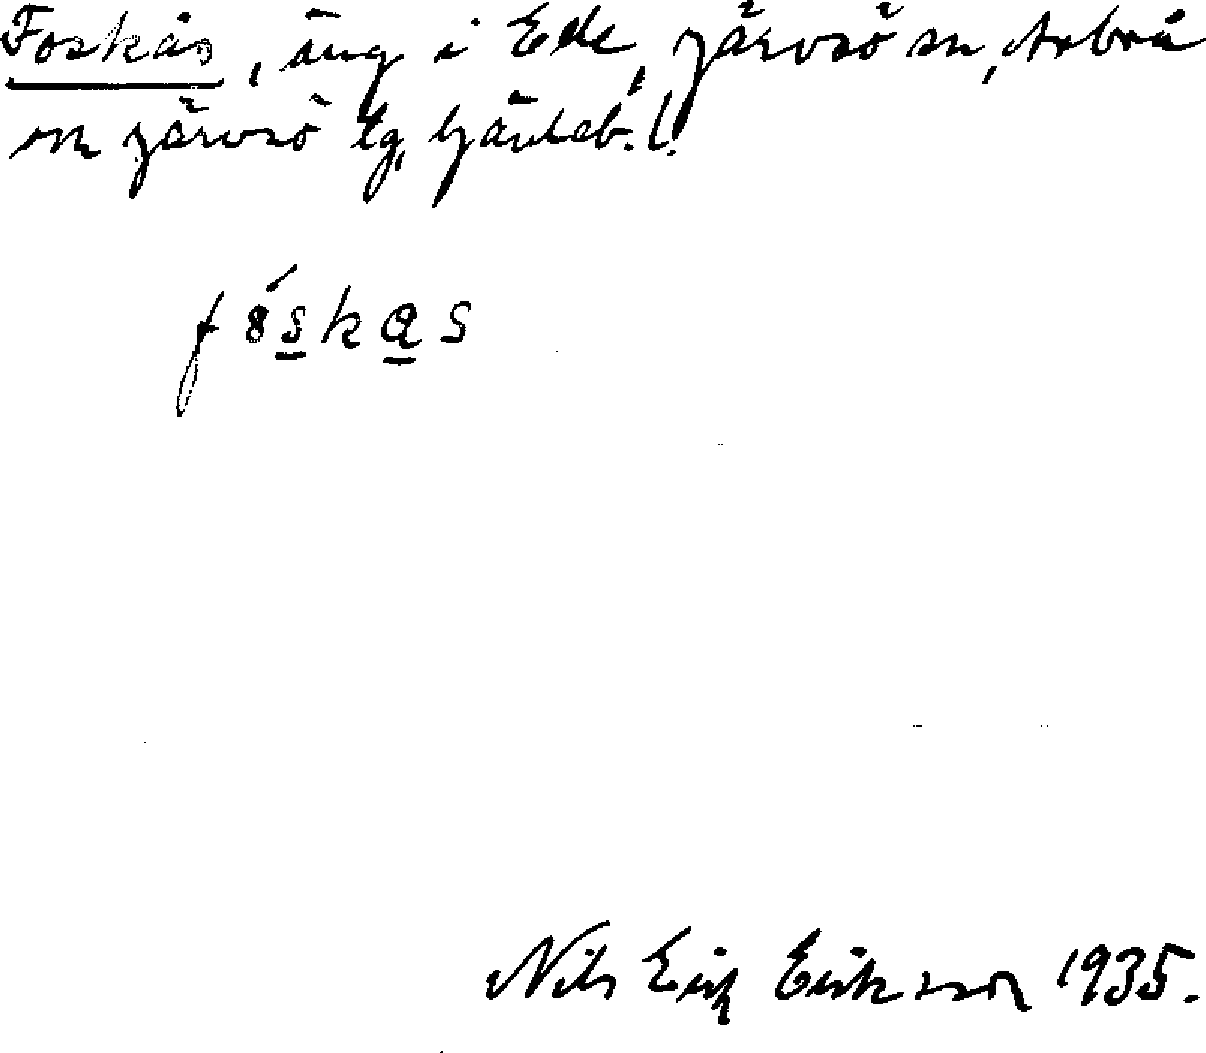 Foskås, äng i Ede, Järvsö sn, Arbrå
o Järvsö tg, Gävleb. l.
föskas
Nils Erik Eriksson 1935.